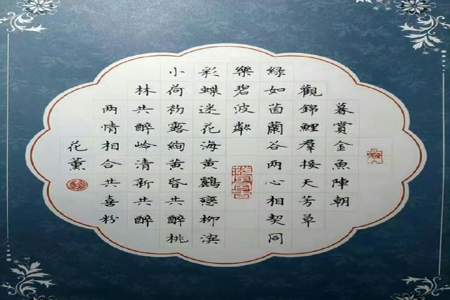 暮賞金魚陣朝
觀錦鯉羣接天芳草
綠如茵蘭谷兩心相契同
樂碧波粼
彩蝶迷花海黃鸝戀柳濱
小荷初露絢黃昏共醉桃
林共醉岭清新共醉
兩情相合共喜粉
花薰